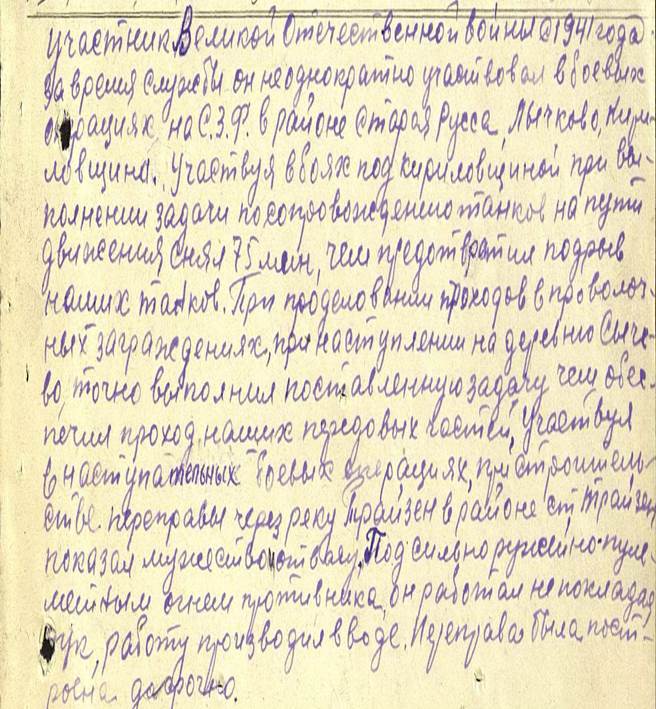 Участник Великой Отечественной войны с 1941 года.
За время службы он неоднократно участвовал в боевых
операциях на С.З.Ф. в районе Старая Русса, Лычково, Кири-
ловщина. Участвуя в боях под Кириловщиной при вы-
полнении задачи по сопровождению танков на пути
движения снял 75 мин, чем предотвратил подрыв
наших танков. При проделовании проходов в проволоч-
ных заграждениях, при наступлении на деревню Сыче-
во, точно выполнил поставленную задачу чем обес-
печил проход наших передовых частей, Участвуя
в наступательных боевых операциях, при строитель-
стве переправы через реку Трайзен в районе ст. Трайзен
показал мужество отвагу. Под сильно ружейно-пуле-
метным огнем противника, он работал не покладая
рук, работу производил в воде. Переправа была пост-
роена досрочно.